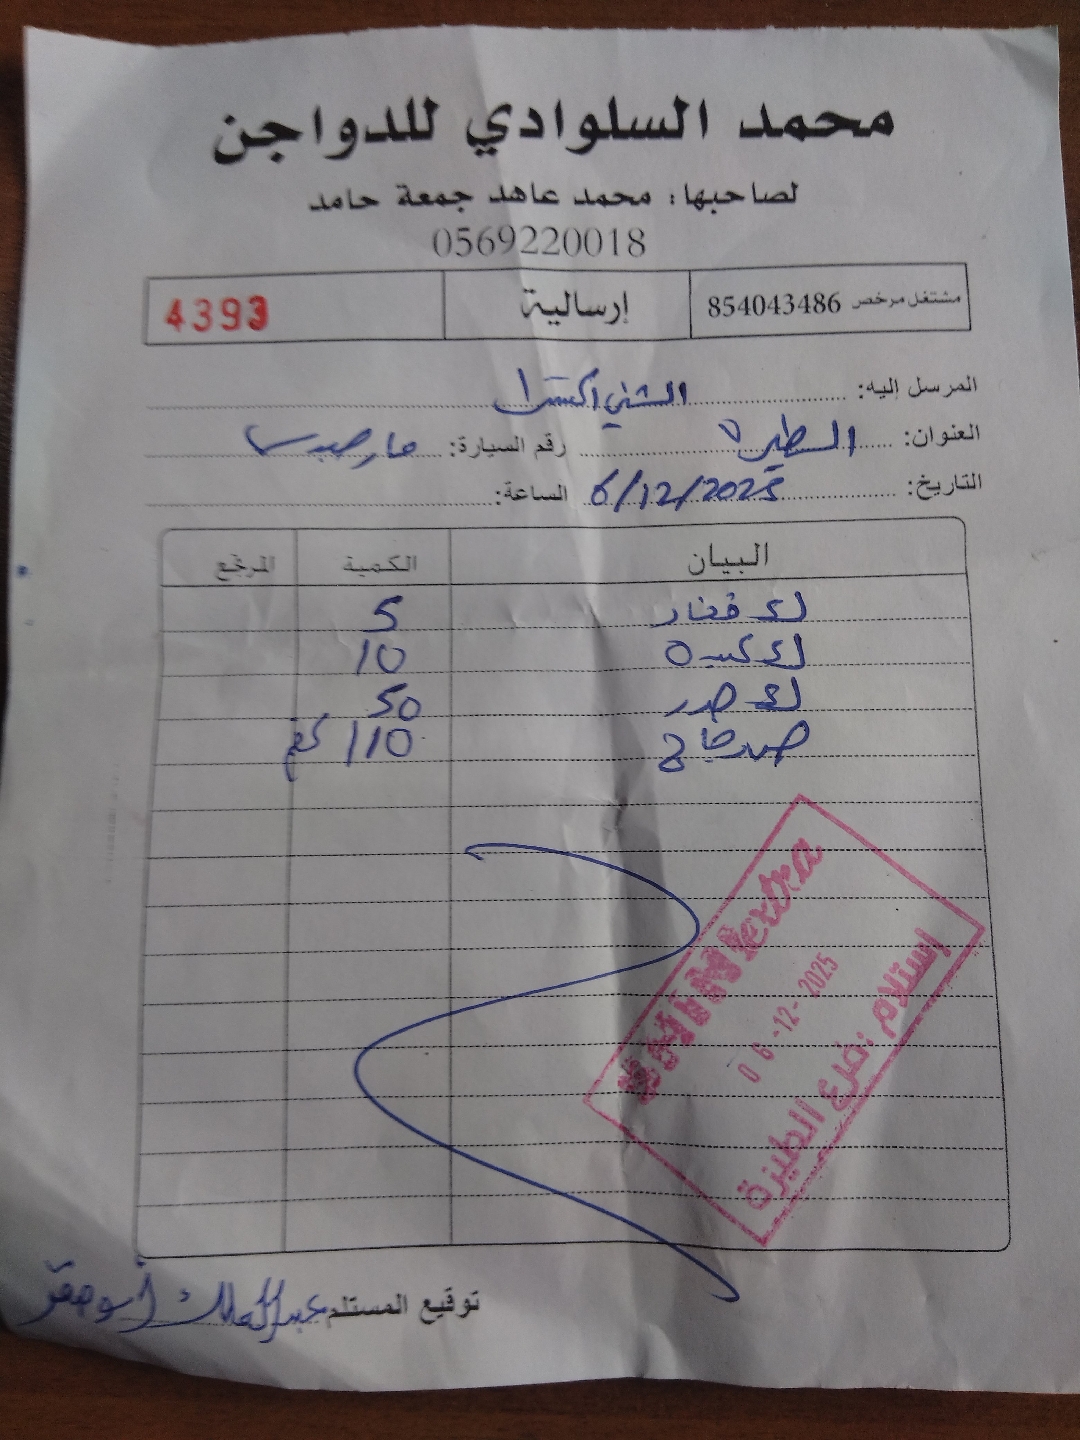 محمد السلوادي للدواجن
لصاحبها: محمد عاهد جمعة حامد
0569220018
مشتغل مرخص 854043486 إرسالية 4393
المرسل إليه: الشني اكسترا
العنوان: الطيرة رقم السيارة:
التاريخ: 6/12/2025 الساعة:
البيان الكمية المرتجع
5
10
صدر 50
110 كغم
SHINI extra
06-12-2025
إستلام: فرع الطيرة
توقيع المستلم عبد المالك أبو صقر